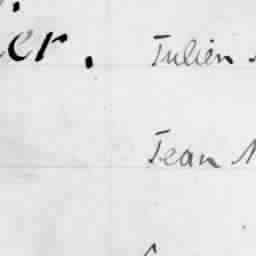 ier. Julien
Jean